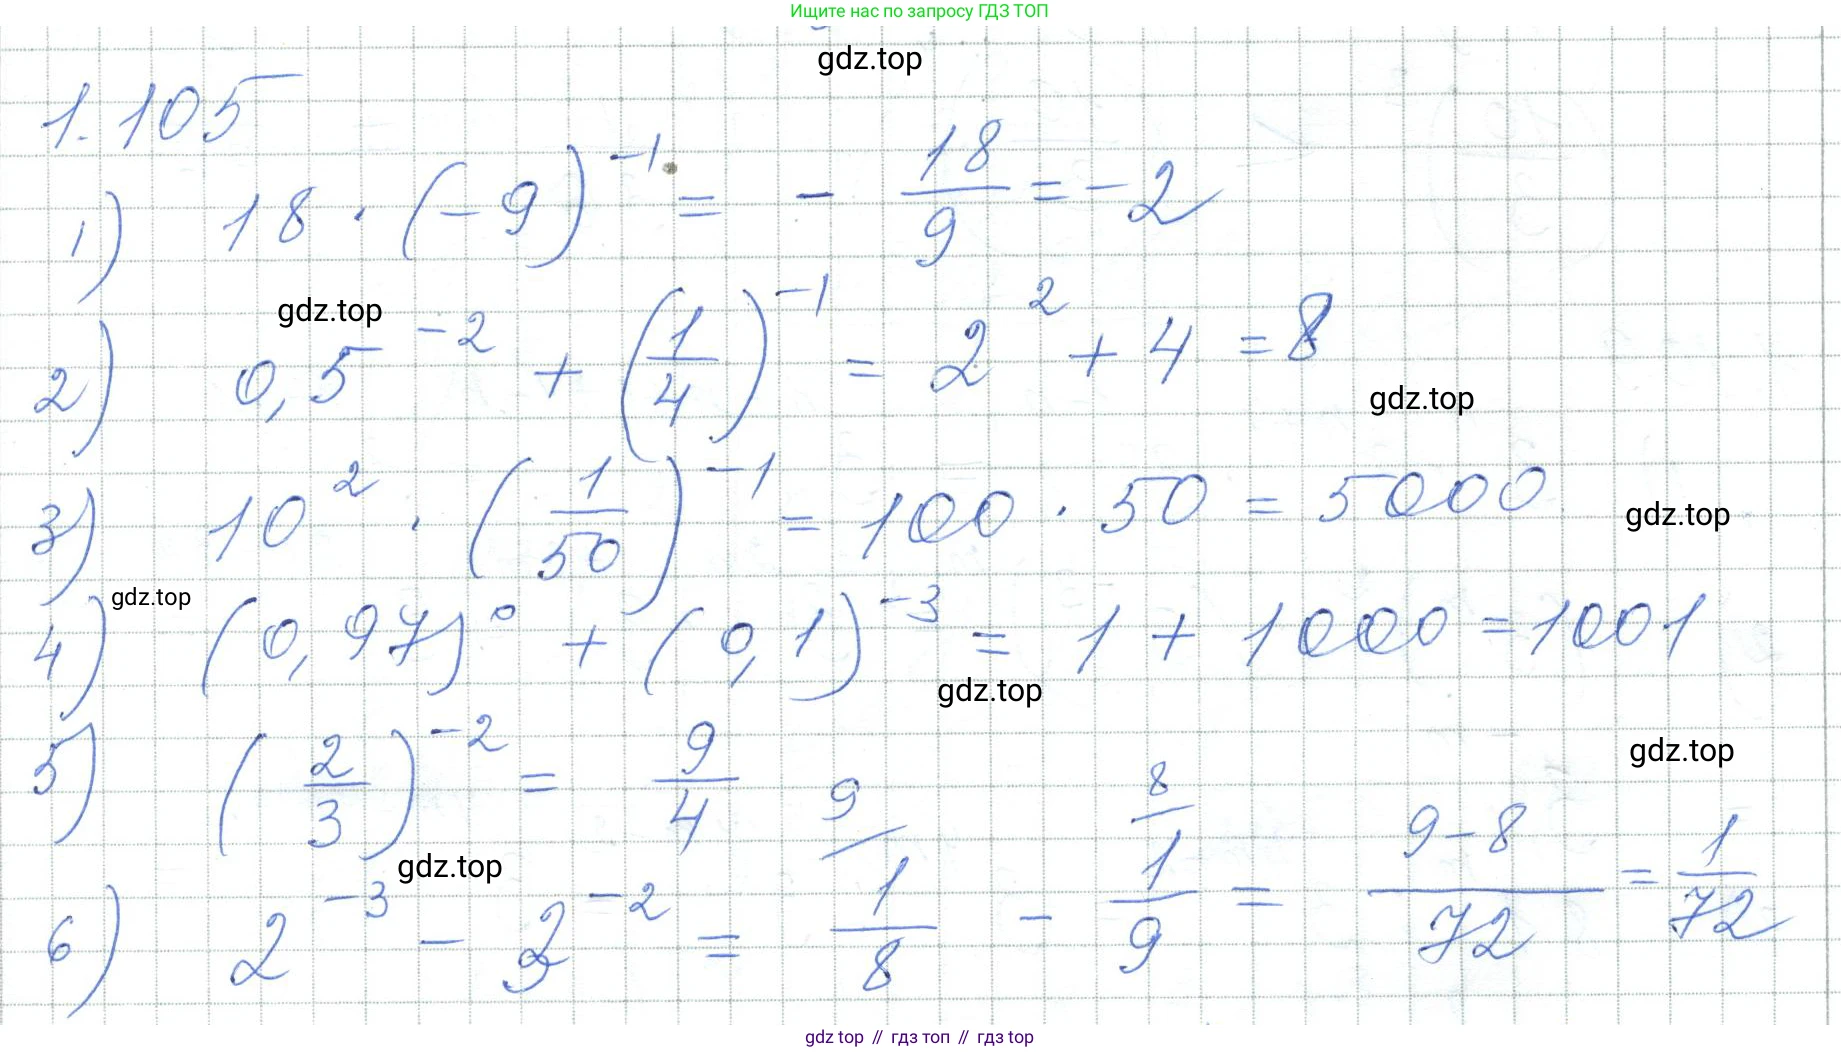 Ищите нас по запросу ГДЗ ТОП
gdz.top
1.105
1) 18 · (-9)^{-1} = - 18/9 = -2
gdz.top
2) 0,5^{-2} + (1/4)^{-1} = 2^2 + 4 = 8
gdz.top
3) 10^2 · (1/50)^{-1} = 100 · 50 = 5000
gdz.top
gdz.top
4) (0,97)^0 + (0,1)^{-3} = 1 + 1000 = 1001
gdz.top
gdz.top
5) (2/3)^{-2} = 9/4
gdz.top
6) 2^{-3} - 3^{-2} = 9/ 1/8 - 8/ 1/9 = 9-8/72 = 1/72
gdz top // гдз топ // гдз top